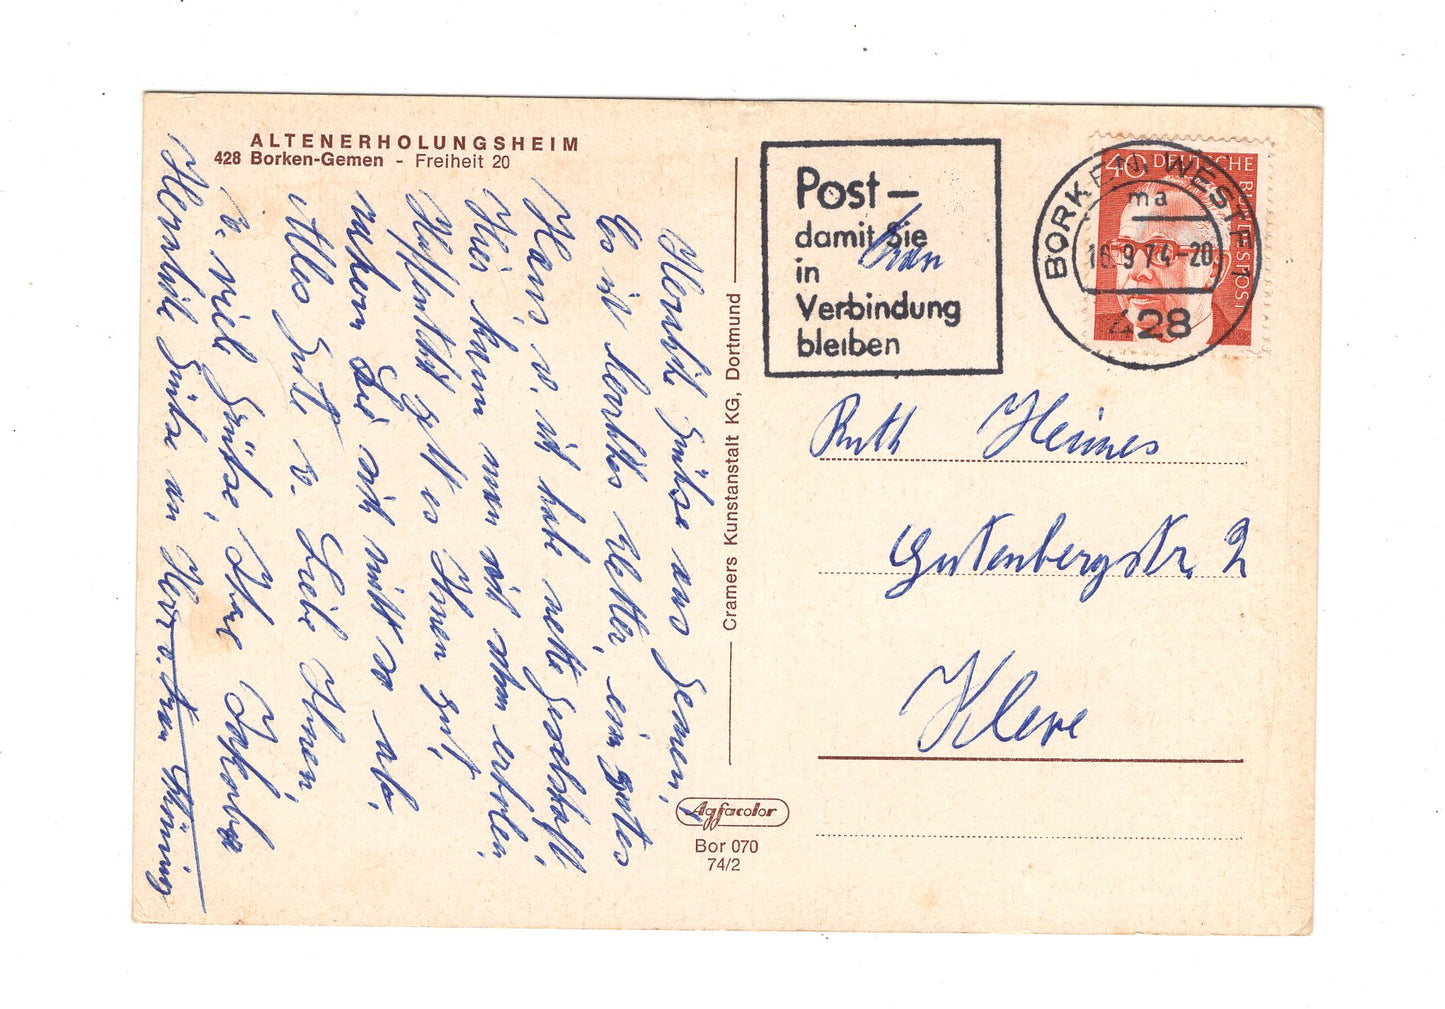 ALTENERHOLUNGSHEIM
428 Borken-Gemen - Freiheit 20
Herzliche Grüße aus Gemen,
Es ist herrliches Wetter, ein gutes
Haus, u. ich habe nette Gesellschaft,
Hier kann man sich schon erholen,
Hoffentlich geht es Ihnen gut,
rackern Sie sich nicht so ab,
Alles Gute v. Liebe Ihnen,
u. viel Grüße, Ihre
Herzliche Grüße an Herr u. Frau
Cramers Kunstanstalt KG, Dortmund
Agfacolor
Bor 070
74/2
Post –
damit Sie
in
Verbindung
bleiben
40 DEUTSCHE BUNDESPOST
BORKEN, WESTF 1
ma
16.9.74-20
428
Frau
Ruth Heimes
Gutenbergstr. 2
Kleve